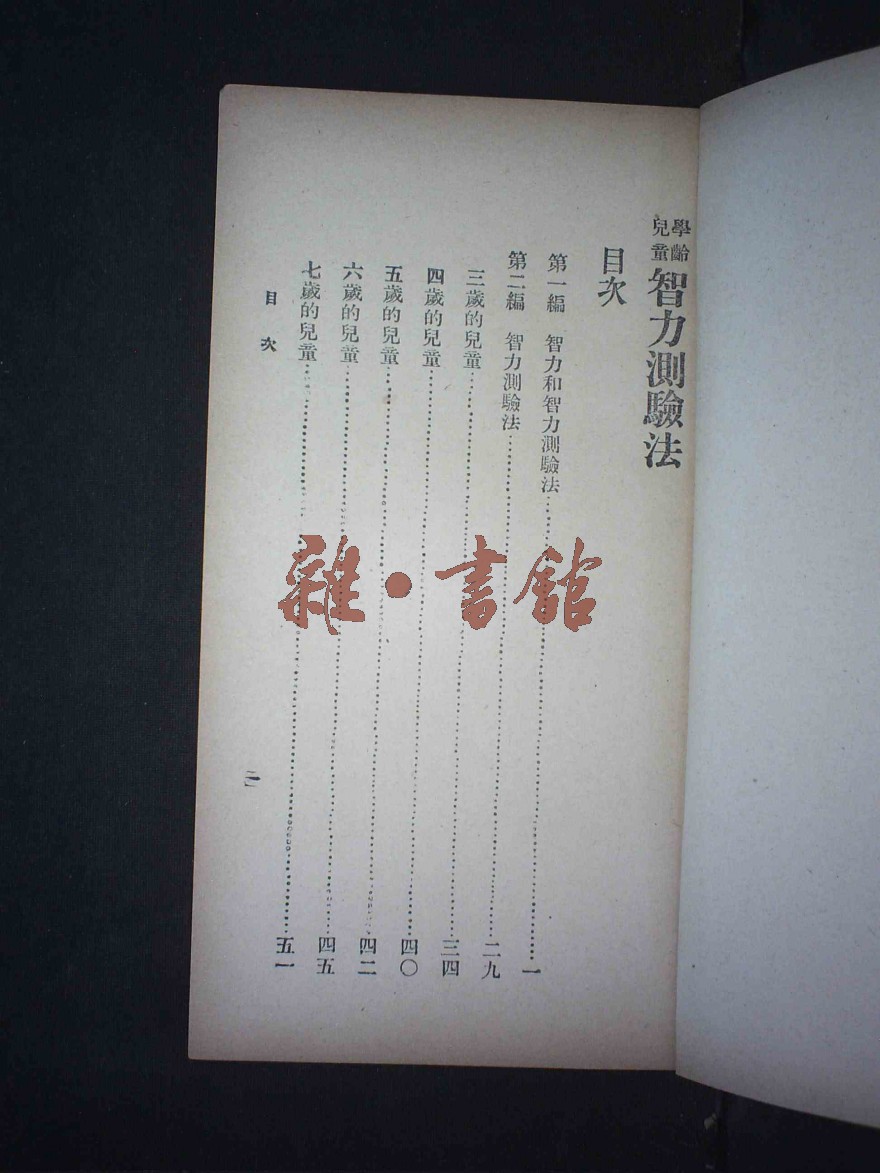 學齡兒童 智力測驗法
目次
第一編 智力和智力測驗法……一
第二編 智力測驗法……二九
三歲的兒童……三四
四歲的兒童……四〇
五歲的兒童……四二
六歲的兒童……四五
七歲的兒童……五一
目次
雜·書館